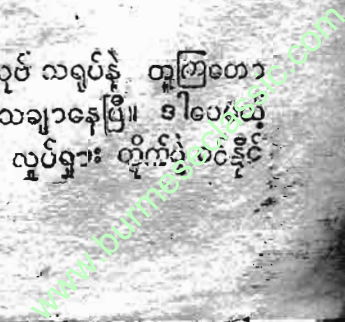 သုဗ် သရုပ်နဲ့ တူကြတော
သချာနေပြီ။ ဒါပေမယ့်
လှုပ်ရှား တိုက်ပွဲ ဝင်နိုင်
www.burmeseclassic.com